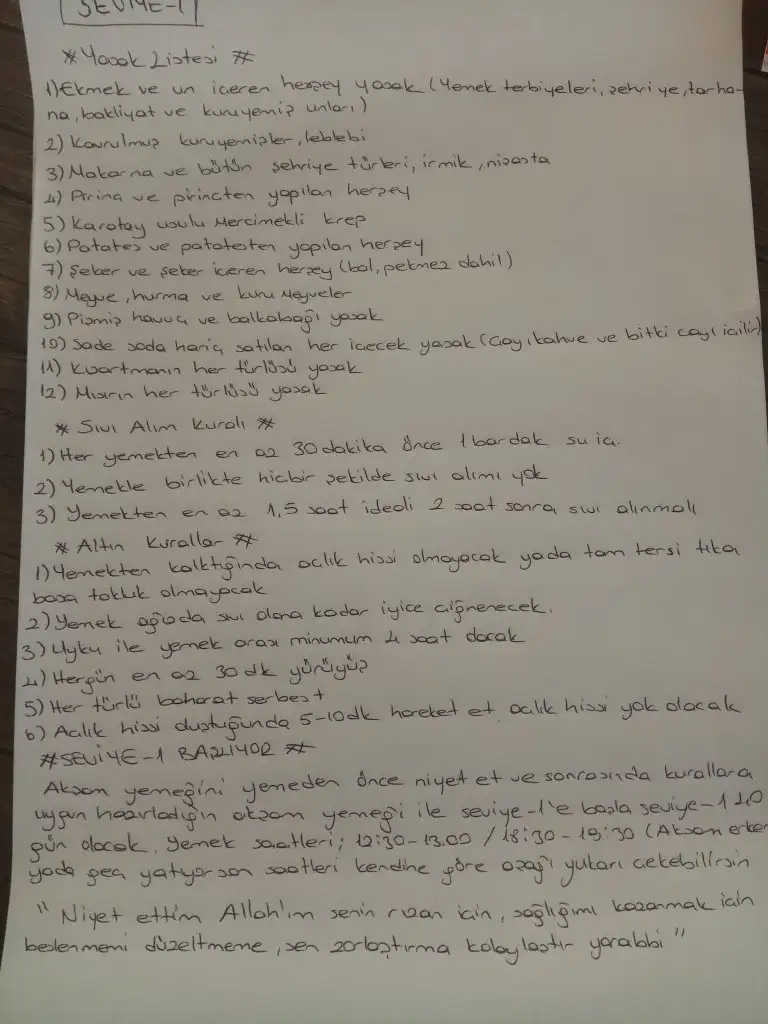 SEVİYE-1
* Yasak Listesi *
1) Ekmek ve un iceren herşey yasak (Yemek terbiyeleri, şehriye, tarha-
na, bakliyat ve kuruyemiş unları)
2) Kavrulmuş kuruyemişler, leblebi
3) Makarna ve bütün şehriye türleri, irmik, nişasta
4) Pirinç ve pirinçten yapılan herşey
5) Karatay usulu Mercimekli krep
6) Patates ve patatesten yapılan herşey
7) Şeker ve şeker iceren herşey (bal, pekmez dahil)
8) Meyve, hurma ve kuru Meyveler
9) Pişmiş havuç ve balkabağı yasak
10) Sade soda hariç satılan her icecek yasak (Çay, kahve ve bitki cayı icilir)
11) Kızartmanın her türlüsü yasak
12) Mısırın her türlüsü yasak
* Sıvı Alım Kuralı *
1) Her yemekten en az 30 dakika önce 1 bardak su ic.
2) Yemekle birlikte hicbir şekilde sıvı alımı yok
3) Yemekten en az 1,5 saat ideali 2 saat sonra sıvı alınmalı
* Altın Kurallar *
1) Yemekten kalktığında aclık hissi olmayacak yada tam tersi tıka
basa tokluk olmayacak
2) Yemek ağızda sıvı olana kadar iyice ciğnenecek.
3) Uyku ile yemek arası minumum 4 saat olacak
4) Hergün en az 30 dk yürüyüş
5) Her türlü baharat serbest
6) Aclık hissi duştuğunda 5-10dk hareket et aclık hissi yok olacak
* SEVİYE-1 BAŞLIYOR *
Akşam yemeğini yemeden önce niyet et ve sonrasında kurallara
uygun hazırladığın akşam yemeği ile seviye-1'e başla seviye-1 40
gün olacak. Yemek saatleri; 12:30-13.00 / 18:30-19:30 (Akşam erken
yada geç yatıyorsan saatleri kendine göre aşağı yukarı cekebilirsin
" Niyet ettim Allah'ım senin rızan icin, sağlığımı kazanmak icin
beslenmemi düzeltmeme, sen zorlaştırma kolaylaştır yarabbi "